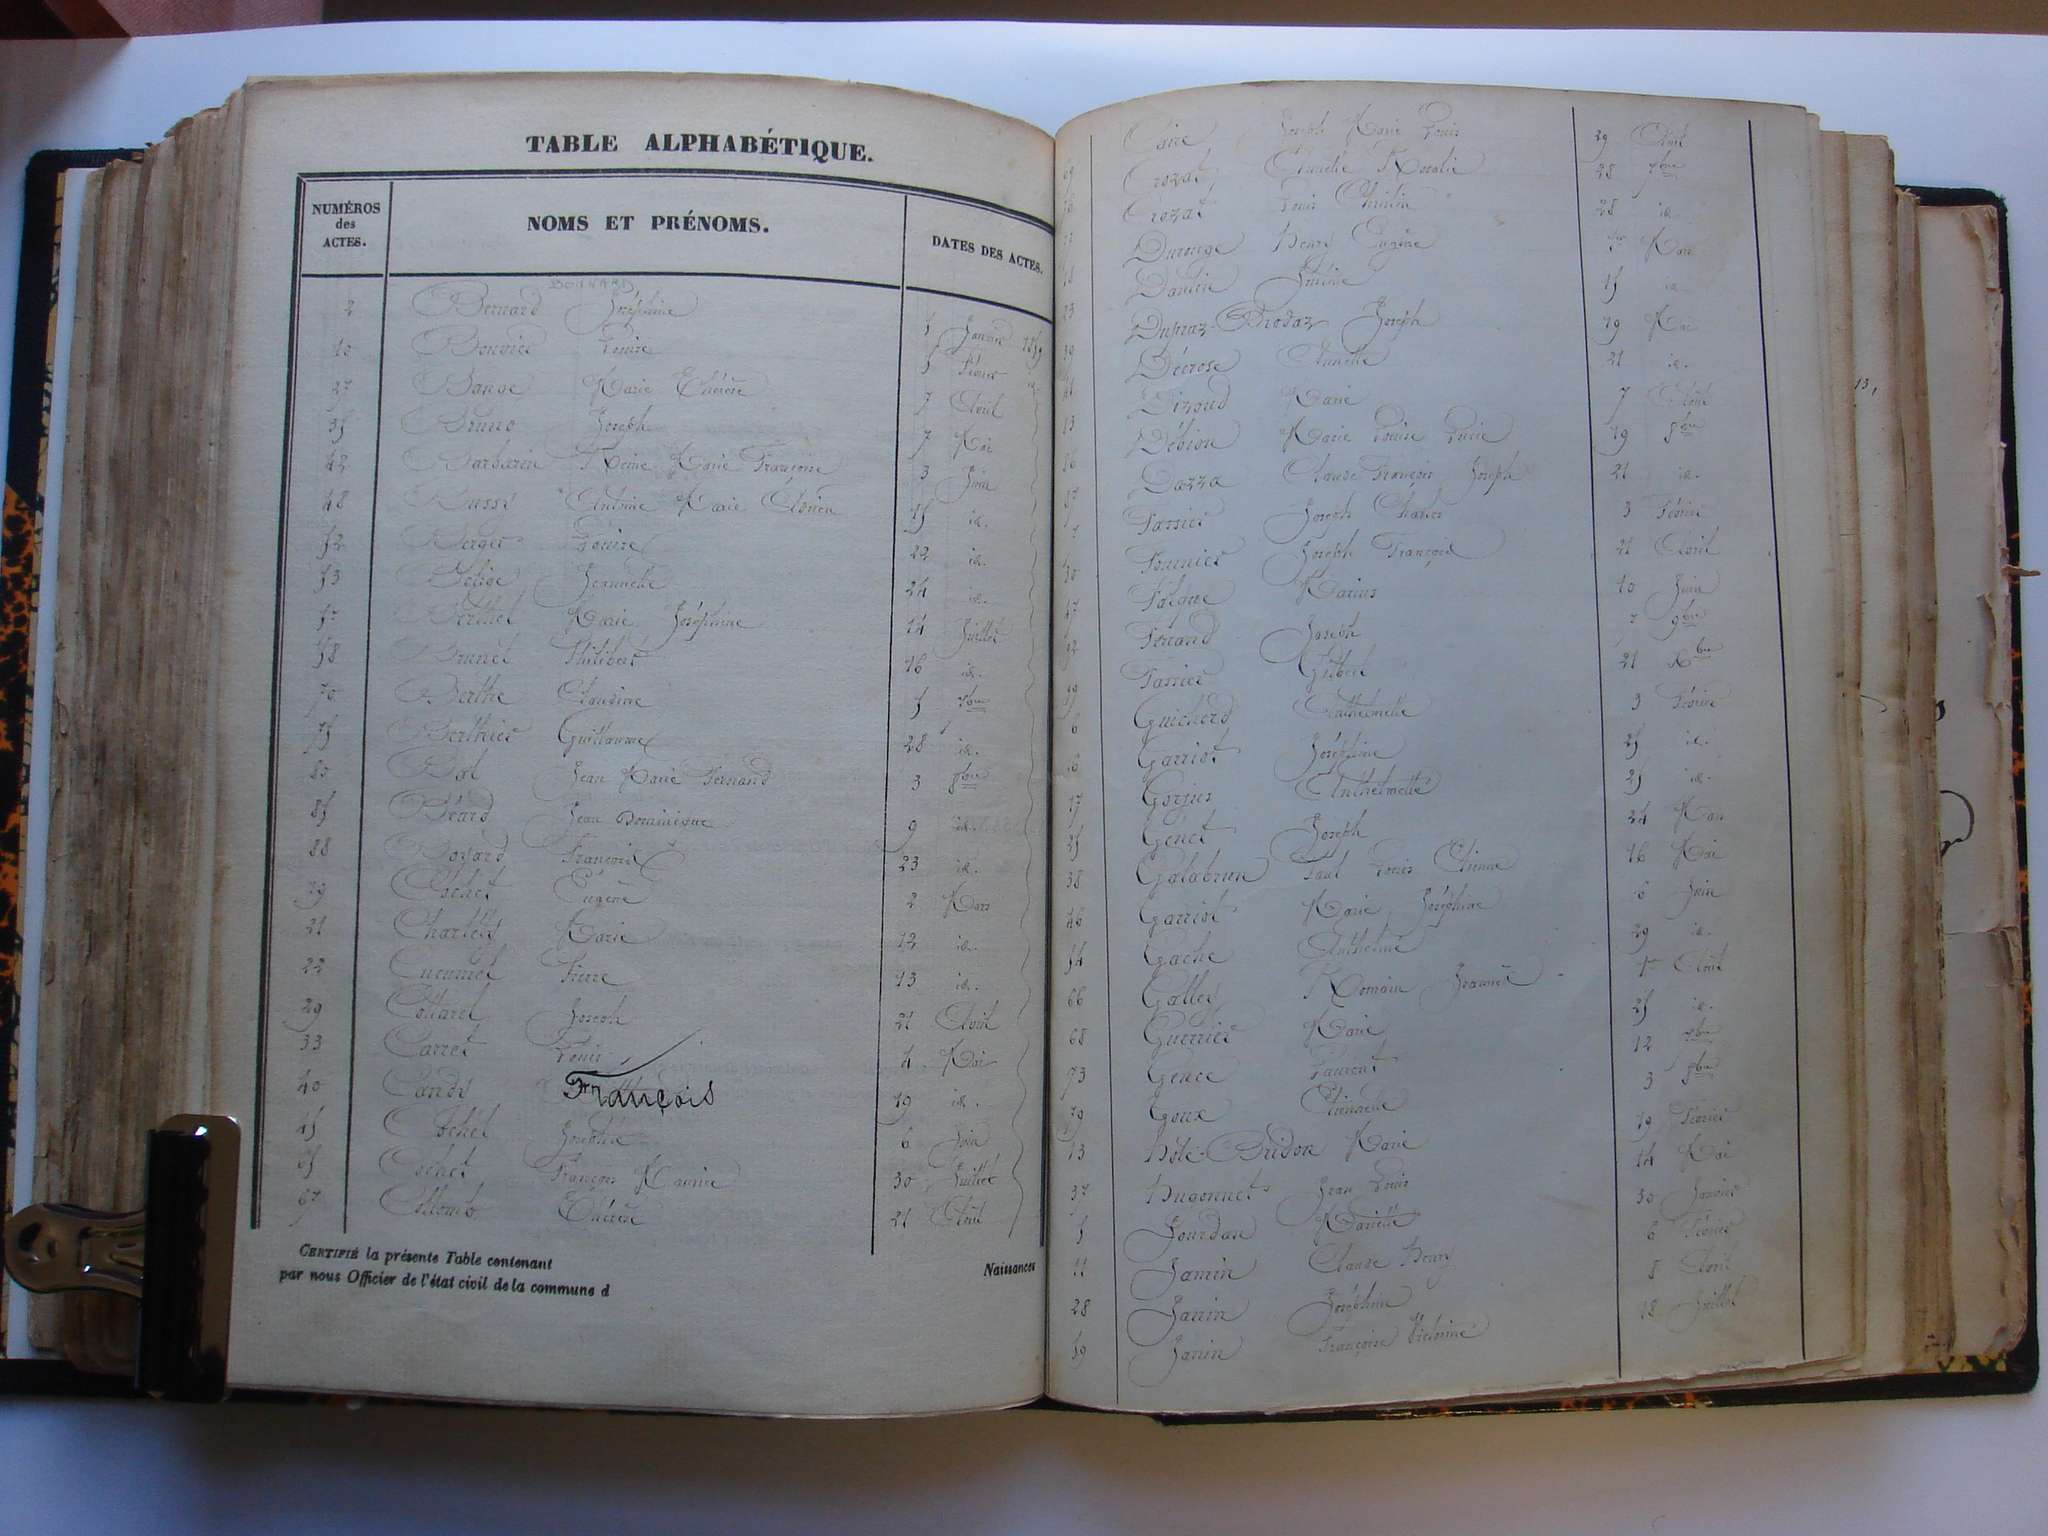 TABLE ALPHABÉTIQUE.
NUMÉROS des ACTES.
NOMS ET PRÉNOMS.
DATES DES ACTES.
BONNARD
2 Bernard Joséphine 5 Janvier 1859
10 Bouvier Louise 5 Février id.
27 Bange Marie Thérèse 7 Avril
35 Bruno Joseph 7 Mai
42 Barbarin Reine Marie Françoise 3 Juin
48 Bussy Antoine Marie 15 id.
52 Berger Louise 22 id.
53 Jeannette 24 id.
57 Berthet Marie Joséphine 14 Juillet
58 Brunet Philibert 16 id.
70 Berthe Claudine 5 7bre
75 Berthier Guillaume 28 id.
80 Bal Jean Marie Fernand 3 8bre
85 Béard Jean Dominique 9 id.
88 Bovard François 23 id.
19 Cochet Eugène 2 Mars
21 Charlety Marie 12 id.
22 Cucumel Pierre 13 id.
29 Collarel Joseph 21 Avril
33 Carret Louis 4 Mai
40 Candy François 19 id.
45 Cochet Josephte 6 Juin
65 Cochet François 30 Juillet
67 Collomb Thérèse 21 Août
CERTIFIÉ la présente Table contenant Naissances
par nous Officier de l'état civil de la commune d
Joseph Marie Louis 29 Août
69 Crozat Amélie Rosalie 28 7bre
Crozat Louis 28 id.
Durouge Henry Eugène 1er Mars
18 Dantin Justine 15 id.
23 Dupraz-Brodaz Joseph 19 Mai
39 Décrose Annette 21 id.
41 Dizoud Marie 7 Août
Débion Marie Louise 19 8bre
Dazza Claude François Joseph 21 id.
Tassier Joseph Charles 3 Février
Fournier Joseph François 21 Avril
30 Falque Marius 10 Juin
47 Ferrand Joseph 7 9bre
92 Tassier Gilbert 21 Xbre
Guicherd Anthelmette 3 Février
6 Garriot Joséphine 25 id.
16 Gorjus Anthelmette 25 id.
17 Génet Joseph 24 Mars
25 Galabrun Paul Louis Etienne 16 Mai
38 Garriot Marie Joséphine 6 Juin
46 Gache Anthelme 29 id.
54 Gallej Romain 1er Août
66 Guerrier Marie 25 id.
68 Gence Laurent 12 7bre
73 Goux Etiennette 3 8bre
79 Hôte-Bridon Marie 19 Février
13 Hugonnet Jean Louis 14 Mai
37 Jourdan Mariette 30 Janvier
5 Jamin Claude Henry 6 Février
11 Janin Joséphine 8 Avril
28 Janin Françoise Victorine 18 Juillet
59